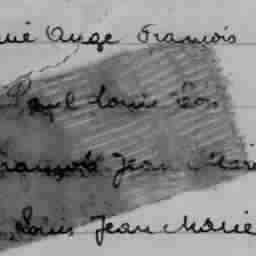 Ange François
Paul Louis Léon
François Jean Marie
Louis Jean Marie